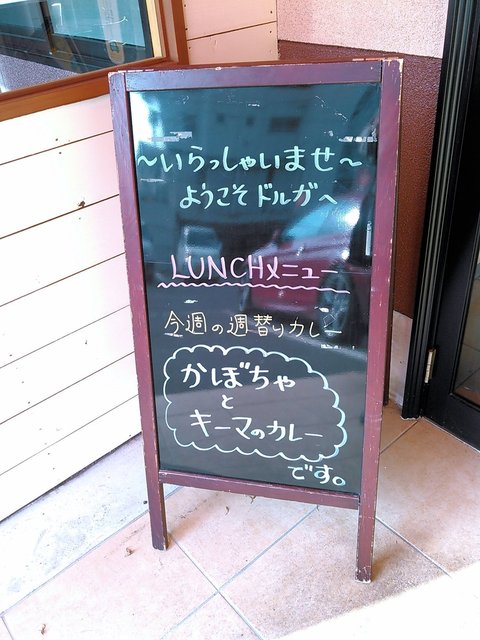 ～いらっしゃいませ～
ようこそ ドルガへ
LUNCHメニュー
今週の週替りカレー
かぼちゃ
と
キーマのカレー
です。